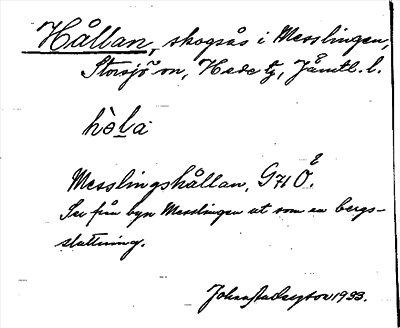 Hållan, skogsås i Messlingen,
Storsjö sn, Hede tg, Jämtl. l.
hòla
Messlingshållan, G 71 Ö.
Ser från byn Messlingen ut som en bergs-
sluttning.
1933.